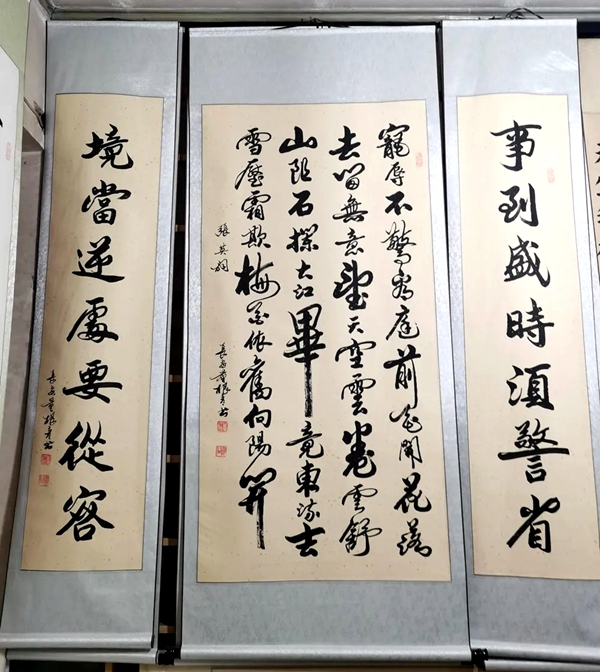 事到盛時湏警省
寵辱不驚看庭前花開花落
去留無意望天空雲卷雲舒
山阻石攔大江畢竟東流去
雪壓霜欺梅花依舊向陽開
境當逆處要從容